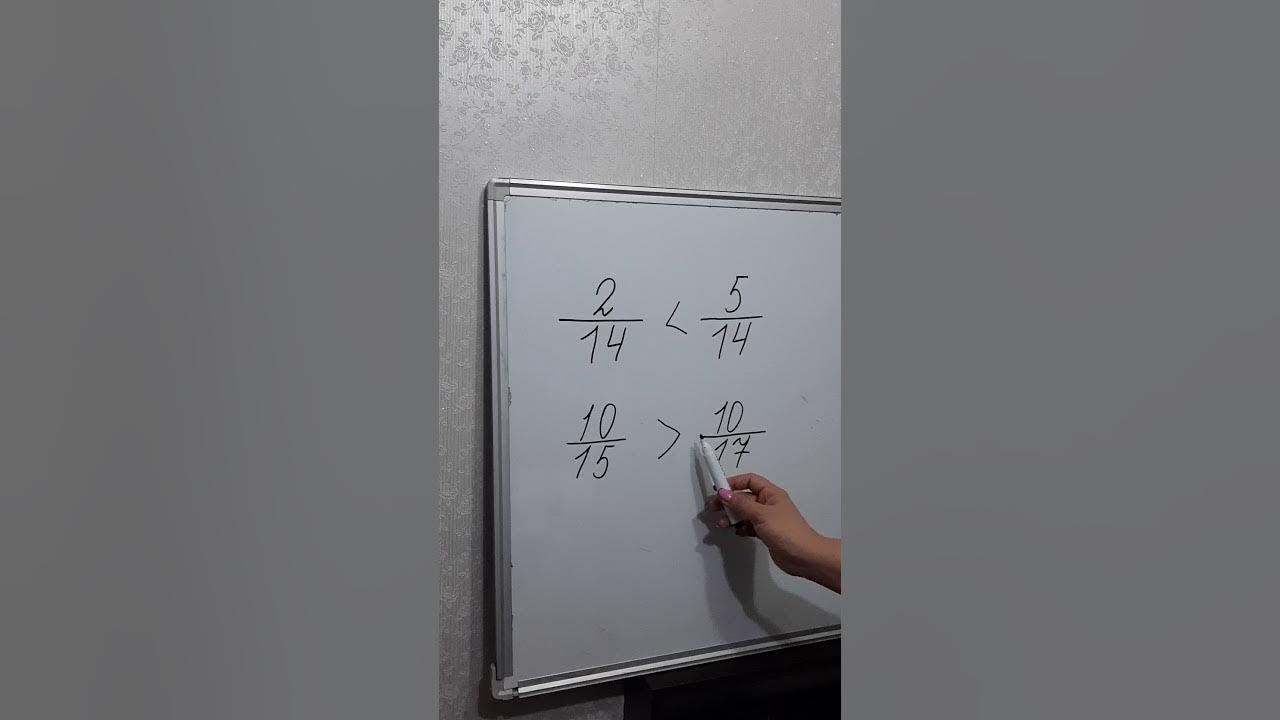 2/14 < 5/14
10/15 > 10/17